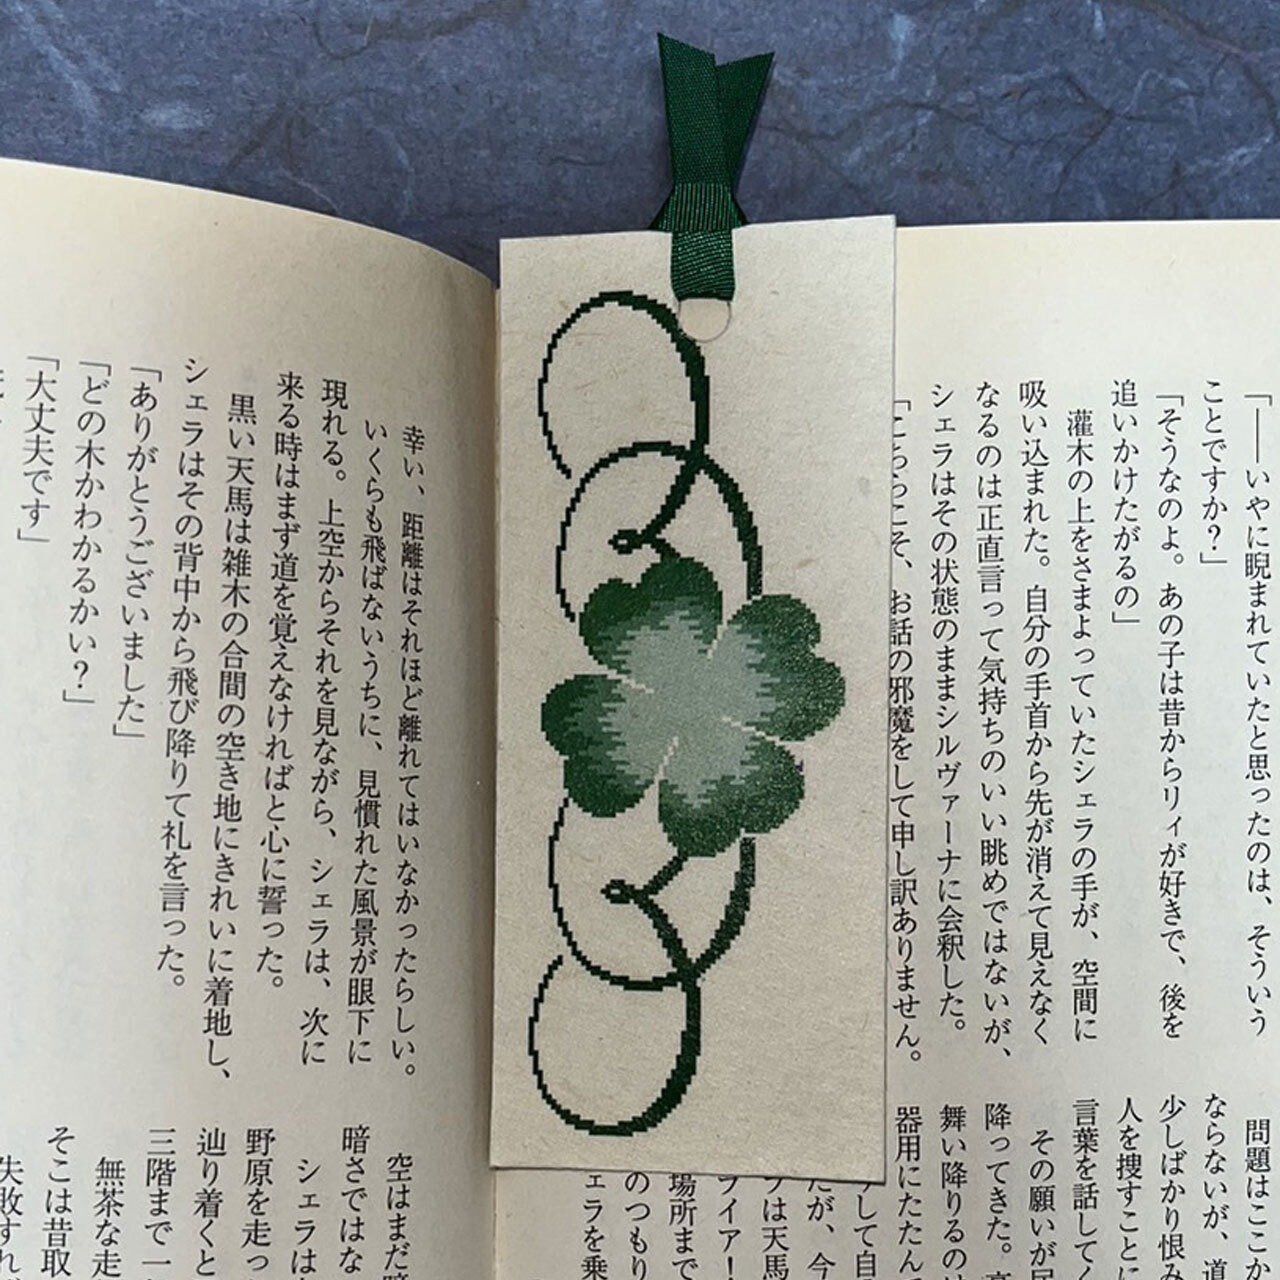 「――いやに睨まれていたと思ったのは、そういう
ことですか？」
「そうなのよ。あの子は昔からリィが好きで、後を
追いかけたがるの」
灌木の上をさまよっていたシェラの手が、空間に
吸い込まれた。自分の手首から先が消えて見えなく
なるのは正直言って気持ちのいい眺めではないが、
シェラはその状態のままシルヴァーナに会釈した。
「こちらこそ、お話の邪魔をして申し訳ありません。
問題はここか
ならないが、道
少しばかり恨み
人を捜すことに
言葉を話してく
その願いが
降ってきた。
舞い降りるのは
器用にたたんで
して自
だが、今
は天馬
ライア！
場所まで
のつもり
ェラを乗
幸い、距離はそれほど離れてはいなかったらしい。
いくらも飛ばないうちに、見慣れた風景が眼下に
現れる。上空からそれを見ながら、シェラは、次に
来る時はまず道を覚えなければと心に誓った。
黒い天馬は雑木の合間の空き地にきれいに着地し、
シェラはその背中から飛び降りて礼を言った。
「ありがとうございました」
「どの木かわかるかい？」
「大丈夫です」
空はまだ
暗さではな
シェラは
野原を走っ
辿り着くと
三階まで一
無茶な走
そこは昔取
失敗すれ